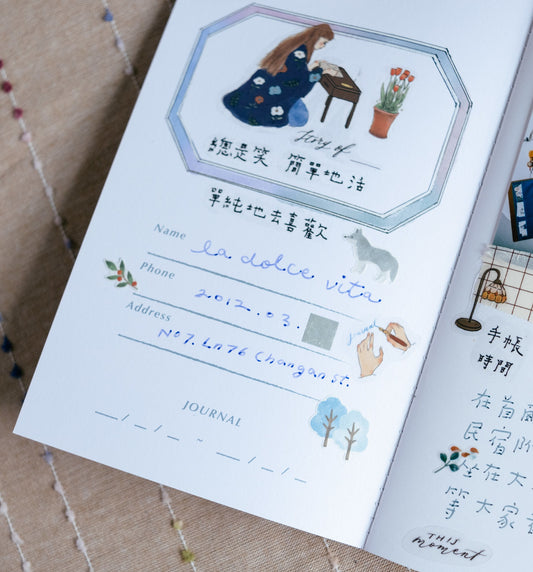 Story of
總是笑 簡單地活
單純地去喜歡
Name la dolce vita
Phone 2012.03.
Address No7. Ln76 Changan st.
journal
JOURNAL
__/__/__ ~ __/__/__
手帳
時間
在首
民宿附
坐在大
等大家
THIS
moment